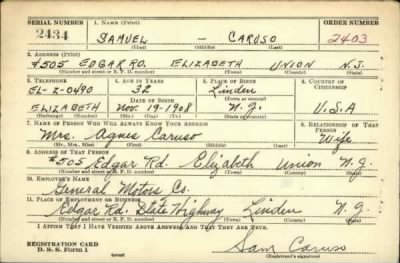 SERIAL NUMBER 1. NAME (Print) ORDER NUMBER
2434 SAMUEL — CARUSO 2403
(First) (Middle) (Last)
2. ADDRESS (Print)
#505 EDGAR RD. ELIZABETH UNION N.J.
(Number and street or R. F. D. number) (Town) (County) (State)
3. TELEPHONE 4. AGE IN YEARS 5. PLACE OF BIRTH 6. COUNTRY OF CITIZENSHIP
EL-2-0490 32 Linden
DATE OF BIRTH (Town or county)
ELIZABETH Nov. 19-1908 N.J. U.S.A
(Exchange) (Number) (Mo.) (Day) (Yr.) (State or country)
7. NAME OF PERSON WHO WILL ALWAYS KNOW YOUR ADDRESS 8. RELATIONSHIP OF THAT PERSON
Mrs. Agnes Caruso Wife
(Mr., Mrs., Miss) (First) (Middle) (Last)
9. ADDRESS OF THAT PERSON
#505 Edgar Rd. Elizabeth Union N.J.
(Number and street or R. F. D. number) (Town) (County) (State)
10. EMPLOYER'S NAME
General Motors Co.
11. PLACE OF EMPLOYMENT OR BUSINESS
Edgar Rd. State Highway Linden N.J.
(Number and street or R. F. D. number) (Town) (County) (State)
I AFFIRM THAT I HAVE VERIFIED ABOVE ANSWERS AND THAT THEY ARE TRUE.
REGISTRATION CARD
D. S. S. Form 1 (over) Sam Caruso
(Registrant's signature)